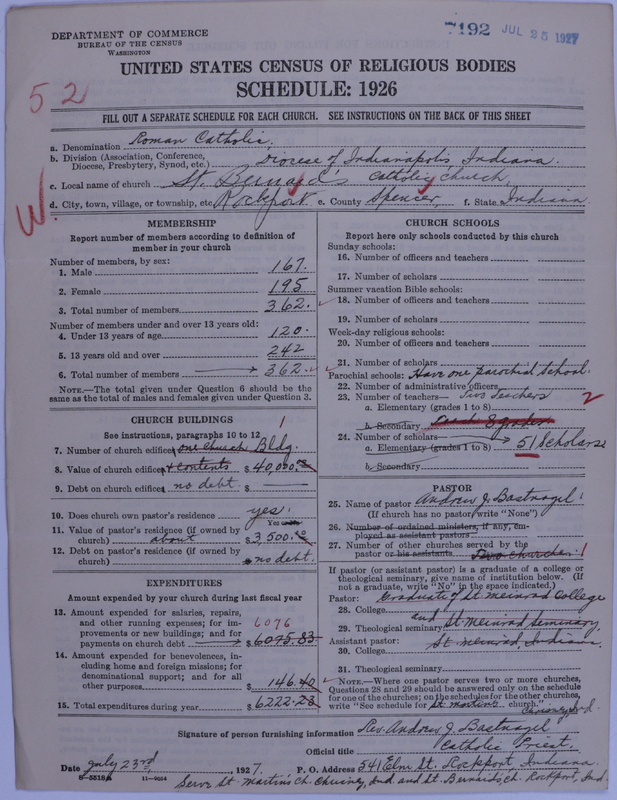 DEPARTMENT OF COMMERCE
BUREAU OF THE CENSUS
WASHINGTON
7192 JUL 25 1927
UNITED STATES CENSUS OF RELIGIOUS BODIES
SCHEDULE: 1926
52
FILL OUT A SEPARATE SCHEDULE FOR EACH CHURCH. SEE INSTRUCTIONS ON THE BACK OF THIS SHEET
a. Denomination Roman Catholic.
b. Division (Association, Conference, Diocese, Presbytery, Synod, etc.) Diocese of Indianapolis Indiana.
c. Local name of church St. Bernard's Catholic Church,
d. City, town, village, or township, etc. Rockport. e. County Spencer f. State Indiana.
W
MEMBERSHIP
Report number of members according to definition of member in your church
Number of members, by sex:
1. Male 167.
2. Female 195
3. Total number of members 362.
Number of members under and over 13 years old:
4. Under 13 years of age 120.
5. 13 years old and over 242
6. Total number of members 362.
NOTE.—The total given under Question 6 should be the same as the total of males and females given under Question 3.
CHURCH BUILDINGS 1
See instructions, paragraphs 10 to 12
7. Number of church edifices one Church Bldg.
8. Value of church edifices & contents $ 40,000.00
9. Debt on church edifices no debt. $
10. Does church own pastor's residence yes.
Yes or no
11. Value of pastor's residence (if owned by church) about $ 3,500.00
12. Debt on pastor's residence (if owned by church) no debt.
EXPENDITURES
Amount expended by your church during last fiscal year
13. Amount expended for salaries, repairs, and other running expenses; for improvements or new buildings; and for payments on church debt 6076 $ 6075.83
14. Amount expended for benevolences, including home and foreign missions; for denominational support; and for all other purposes $ 146.40
15. Total expenditures during year $ 6222.23
CHURCH SCHOOLS
Report here only schools conducted by this church
Sunday schools:
16. Number of officers and teachers
17. Number of scholars
Summer vacation Bible schools:
18. Number of officers and teachers
19. Number of scholars
Week-day religious schools:
20. Number of officers and teachers
21. Number of scholars
Parochial schools: Have one parochial School.
22. Number of administrative officers
23. Number of teachers— Two Teachers 2
a. Elementary (grades 1 to 8)
b. Secondary Teach 8 grades
24. Number of scholars
a. Elementary (grades 1 to 8) 51 Scholars
b. Secondary
PASTOR
25. Name of pastor Andrew J. Bastnagel
(If church has no pastor, write "None")
26. Number of ordained ministers, if any, employed as assistant pastors
27. Number of other churches served by the pastor or his assistants Two churches. 1
If pastor (or assistant pastor) is a graduate of a college or theological seminary, give name of institution below. (If not a graduate, write "No" in the space indicated.)
Pastor: Graduate of St Meinrad College
28. College and
29. Theological seminary St Meinrad Seminary,
Assistant pastor: St Meinrad, Indiana.
30. College
31. Theological seminary
NOTE.—Where one pastor serves two or more churches, Questions 28 and 29 should be answered only on the schedule for one of the churches; on the schedules for the other churches, write "See schedule for St Martins church." Chrisney, Ind.
Signature of person furnishing information Rev. Andrew J. Bastnagel
Official title Catholic Priest.
Date July 23rd, 1927. P. O. Address 541 Elm St. Rockport, Indiana.
8-5518a 11-9064
Serve St. Martin's Ch. Chrisney, Ind and St. Bernard's Ch. Rockport, Ind.